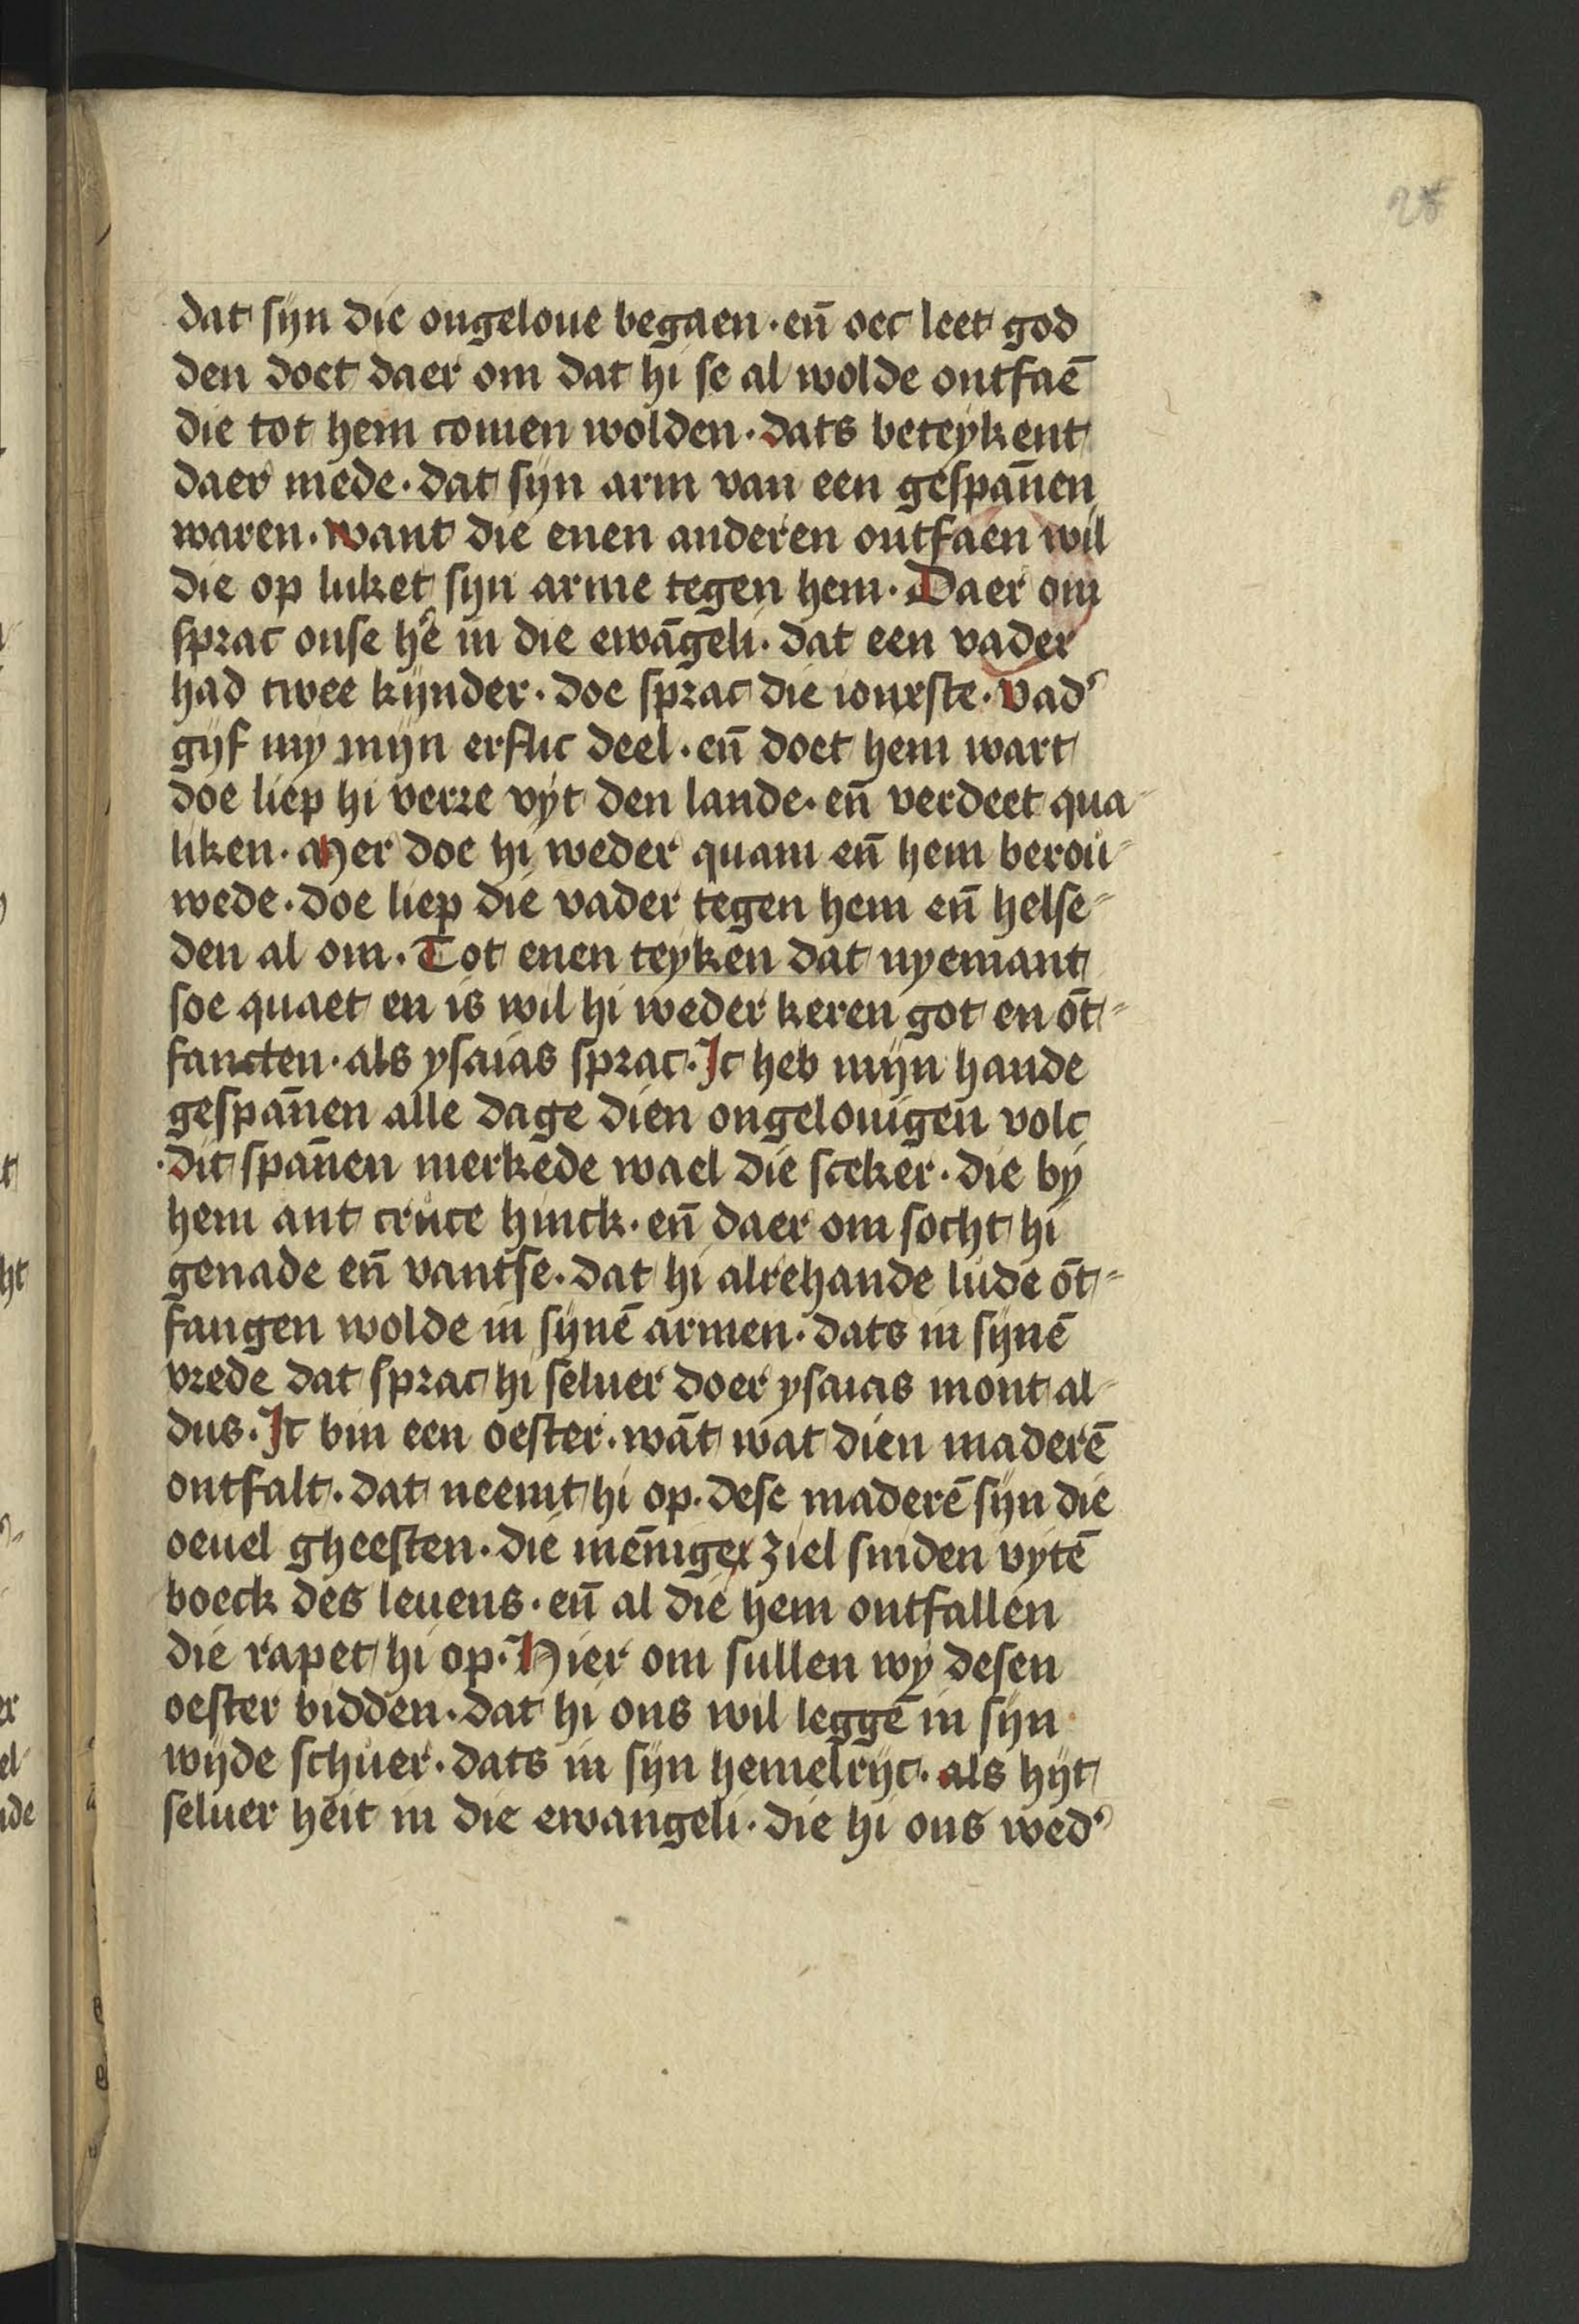 28
dat sijn die ongeloue begaen · eñ oec leet god
den doet daer om dat hi se al wolde ontfaē
die tot hem comen wolden · dats beteykent
daer mede · dat sijn arm van een gespān̄en
waren · want die enen anderen ontfaen wil
die op luket sijn arme tegen hem · Daer om
sprac onse hē in die ewāgeli · dat een vader
had twee kijnder · doe sprac die ionxste · vad'
gijf my mijn erflic deel · eñ doet hem wart
doe liep hi verre vyt den lande · eñ verdeet qua-
liken · Mer doe hi weder quam eñ hem berou-
wede · doe liep die vader tegen hem eñ helse-
den al om · Tot enen teyken dat nyemant
soe quaet en is wil hi weder keren got en ōt-
fancten · als ysaias sprac · Ic heb mijn hande
gespān̄en alle dage dien ongelouigen volc
· dit spān̄en merkede wael die sceker · die by
hem ant cruce hinck · eñ daer om socht hi
genade eñ vantse · dat hi alrehande lude ōt-
fangen wolde in sijnē armen · dats in sijnē
vrede dat sprac hi seluer doer ysaias mont al-
dus · Ic bin een oester · wāt wat dien maderē
ontfalt · dat neemt hi op · dese maderē sijn die
oeuel gheesten · die mēniger ziel sniden vytē
boeck des leuens · eñ al die hem ontfallen
die rapet hi op · Hier om sullen wy desen
oester bidden · dat hi ons wil leggē in sijn
wijde schuer · dats in sijn hemelrijc · als hijt
seluer heit in die ewangeli · die hi ons wed'